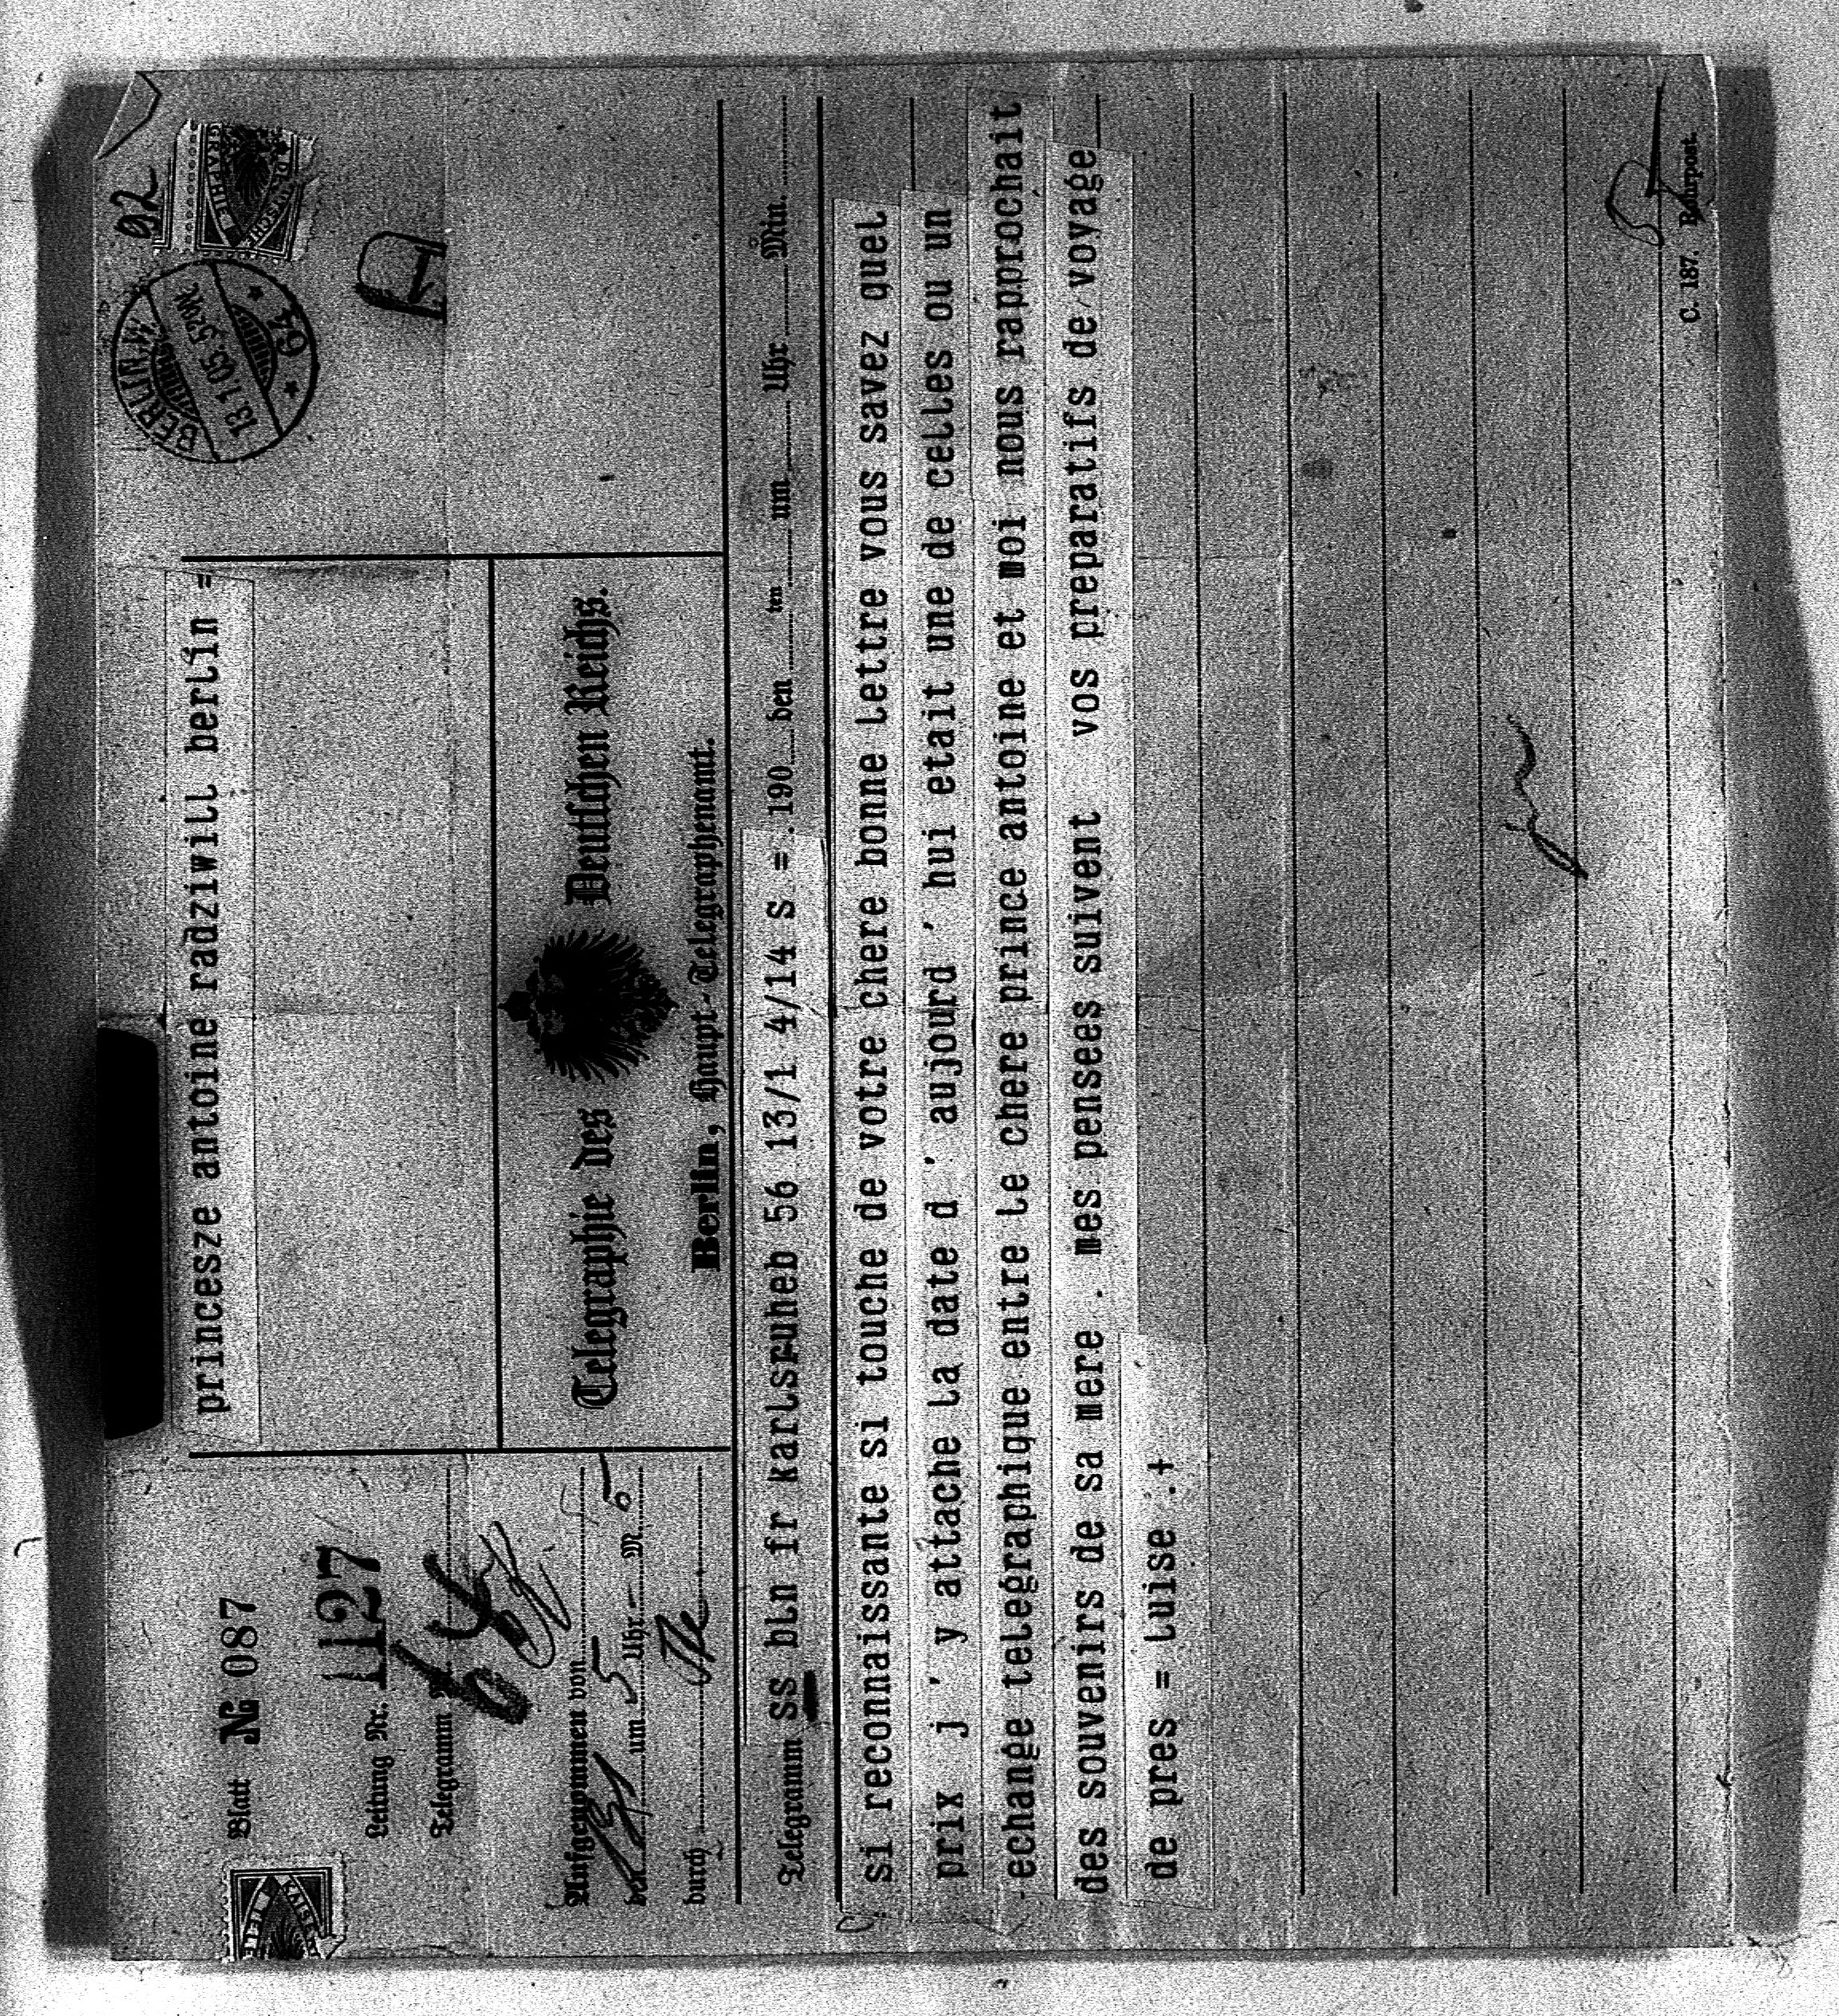 Blatt № 087
Leitung Nr. 1127
Telegramm
Aufgenommen von
um 5 Uhr M
durch
princesze antoine radziwill berlin =
92
BERLIN.W.
13.1.05.5
64
A
Telegraphie des Deutschen Reichs.
Berlin, Haupt-Telegraphenamt.
Telegramm ss bln fr karlsruheb 56 13/1 4/14 S = .190 den ten um Uhr Min.
si reconnaissante si touche de votre chere bonne lettre vous savez quel
prix j ' y attache la date d ' aujourd ' hui etait une de celles ou un
echange telegraphique entre le chere prince antoine et moi nous rapprochait
des souvenirs de sa mere . mes pensees suivent vos preparatifs de voyage
de pres = luise .+
C. 187. Rohrpost.